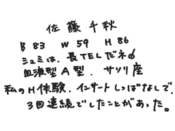 佐藤千秋
B 83 W 59 H 86
シュミは、長TELだネ
血液型A型、サソリ座
私のH体験、インサートしっぱなしで、
3回連続でしたことがあった。